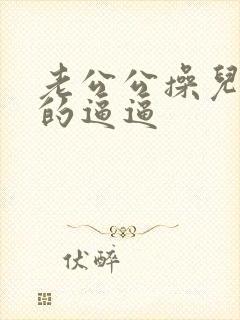 老公公操兒
的逼逼
伏醉